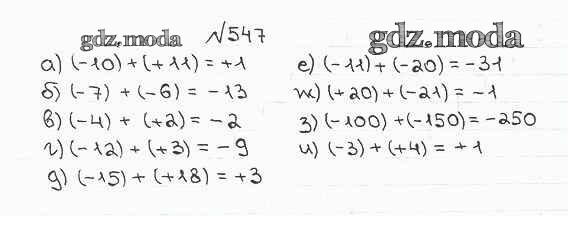 gdz.moda №547 gdz.moda
а) (-10) + (+11) = +1
б) (-7) + (-6) = -13
в) (-4) + (+2) = -2
г) (-12) + (+3) = -9
д) (-15) + (+18) = +3
е) (-11) + (-20) = -31
ж) (+20) + (-21) = -1
з) (-100) + (-150) = -250
и) (-3) + (+4) = +1